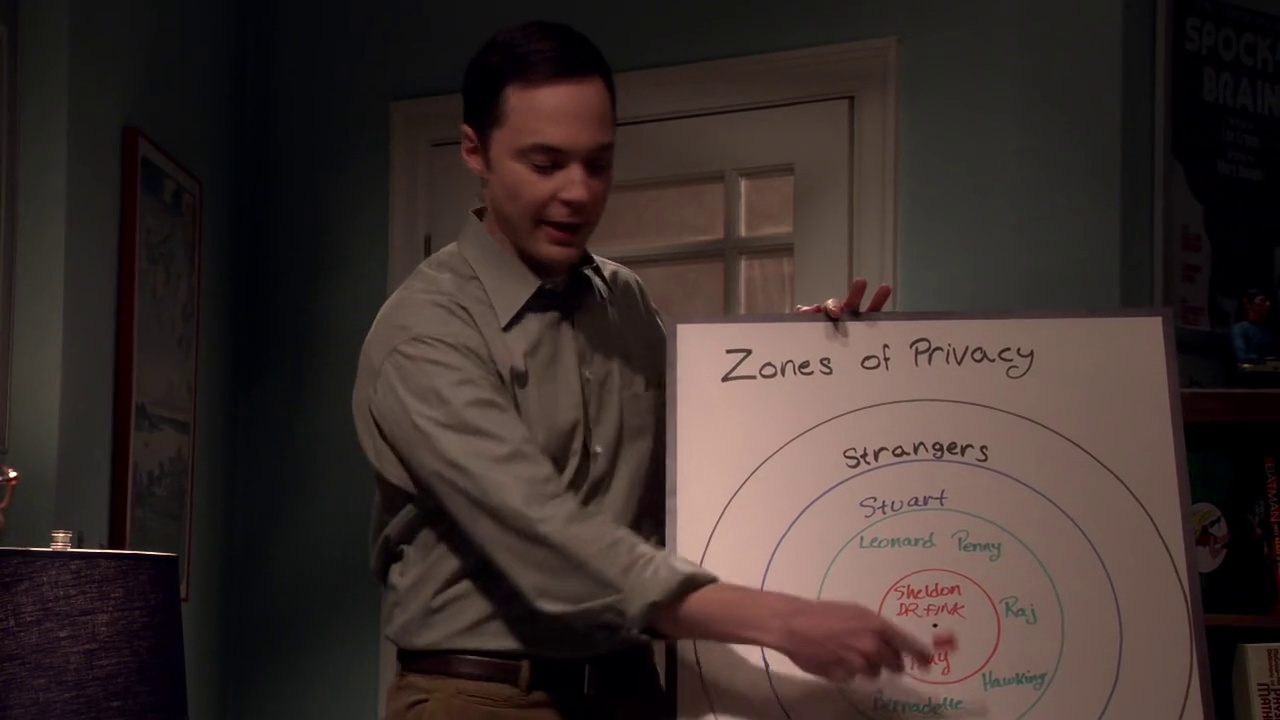 SPOCK'S
BRAIN
Zones of Privacy
Strangers
Stuart
Leonard Penny
Sheldon
DR FINK
Raj
Hawking
Bernadette